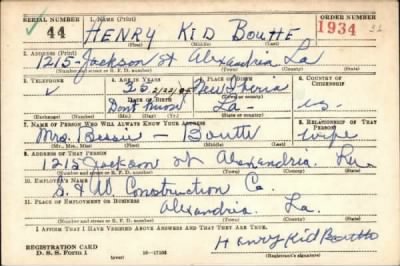 SERIAL NUMBER 1. NAME (Print) ORDER NUMBER
44 HENRY KID BOUTTE 1934
(First) (Middle) (Last)
2. ADDRESS (Print)
1215-Jackson st Alexandria La
(Number and street or R. F. D. number) (Town) (County) (State)
3. TELEPHONE 4. AGE IN YEARS 5. PLACE OF BIRTH 6. COUNTRY OF CITIZENSHIP
35 2/22/05 New Iberia
DATE OF BIRTH
Dont know La- us
(Exchange) (Number) (Mo.) (Day) (Yr.) (State or country)
7. NAME OF PERSON WHO WILL ALWAYS KNOW YOUR ADDRESS 8. RELATIONSHIP OF THAT PERSON
Mrs. Bessie - Boutte wife
(Mr., Mrs., Miss) (First) (Middle) (Last)
9. ADDRESS OF THAT PERSON
1215 Jackson st Alexandria. La.
(Number and street or R. F. D. number) (Town) (County) (State)
10. EMPLOYER'S NAME
Construction Co.
11. PLACE OF EMPLOYMENT OR BUSINESS
Alexandria. La.
(Number and street or R. F. D. number) (Town) (County) (State)
I AFFIRM THAT I HAVE VERIFIED ABOVE ANSWERS AND THAT THEY ARE TRUE.
Henry Kid Boutte
REGISTRATION CARD
D. S. S. Form 1 (over) (Registrant's signature)